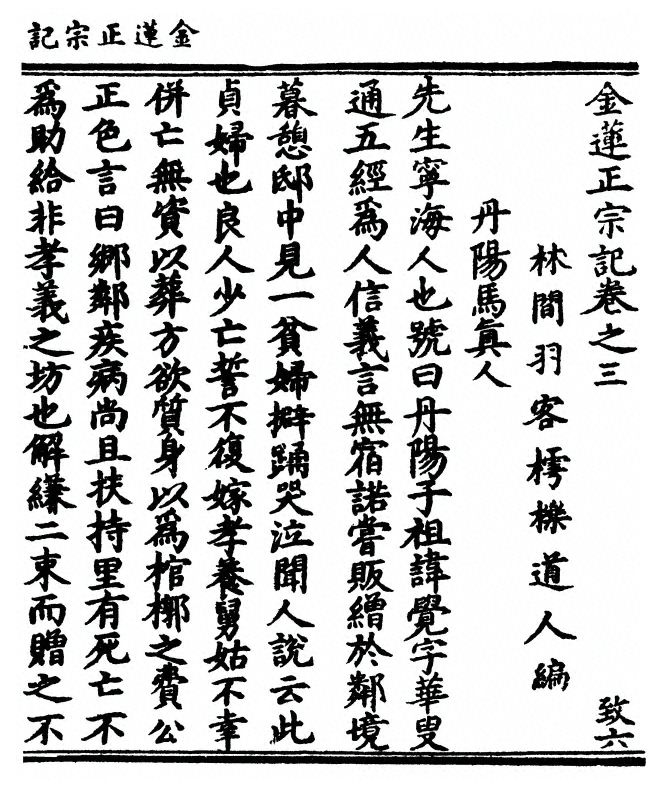 金蓮正宗記
金蓮正宗記卷之三
致六
林間羽客樗櫟道人編
丹陽馬眞人
先生寧海人也號曰丹陽子祖諱覺字華叟
通五經爲人信義言無宿諾嘗販繒於鄰境
暮憩邸中見一貧婦擗踊哭泣聞人說云此
貞婦也良人少亡誓不復嫁孝養舅姑不幸
併亡無資以葬方欲質身以爲棺槨之費公
正色言曰鄉鄰疾病尚且扶持里有死亡不
爲助給非孝義之坊也解縑二束而贈之不